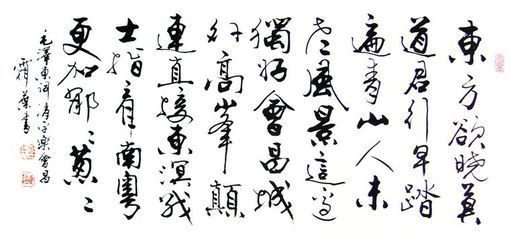 東方欲曉莫
道君行早踏
遍青山人未
老風景這邊
獨好會昌城
外高峯顛
連直接東溟战
士指看南粵
更加郁〻葱〻
毛澤東詞清平樂會昌
霜葉書